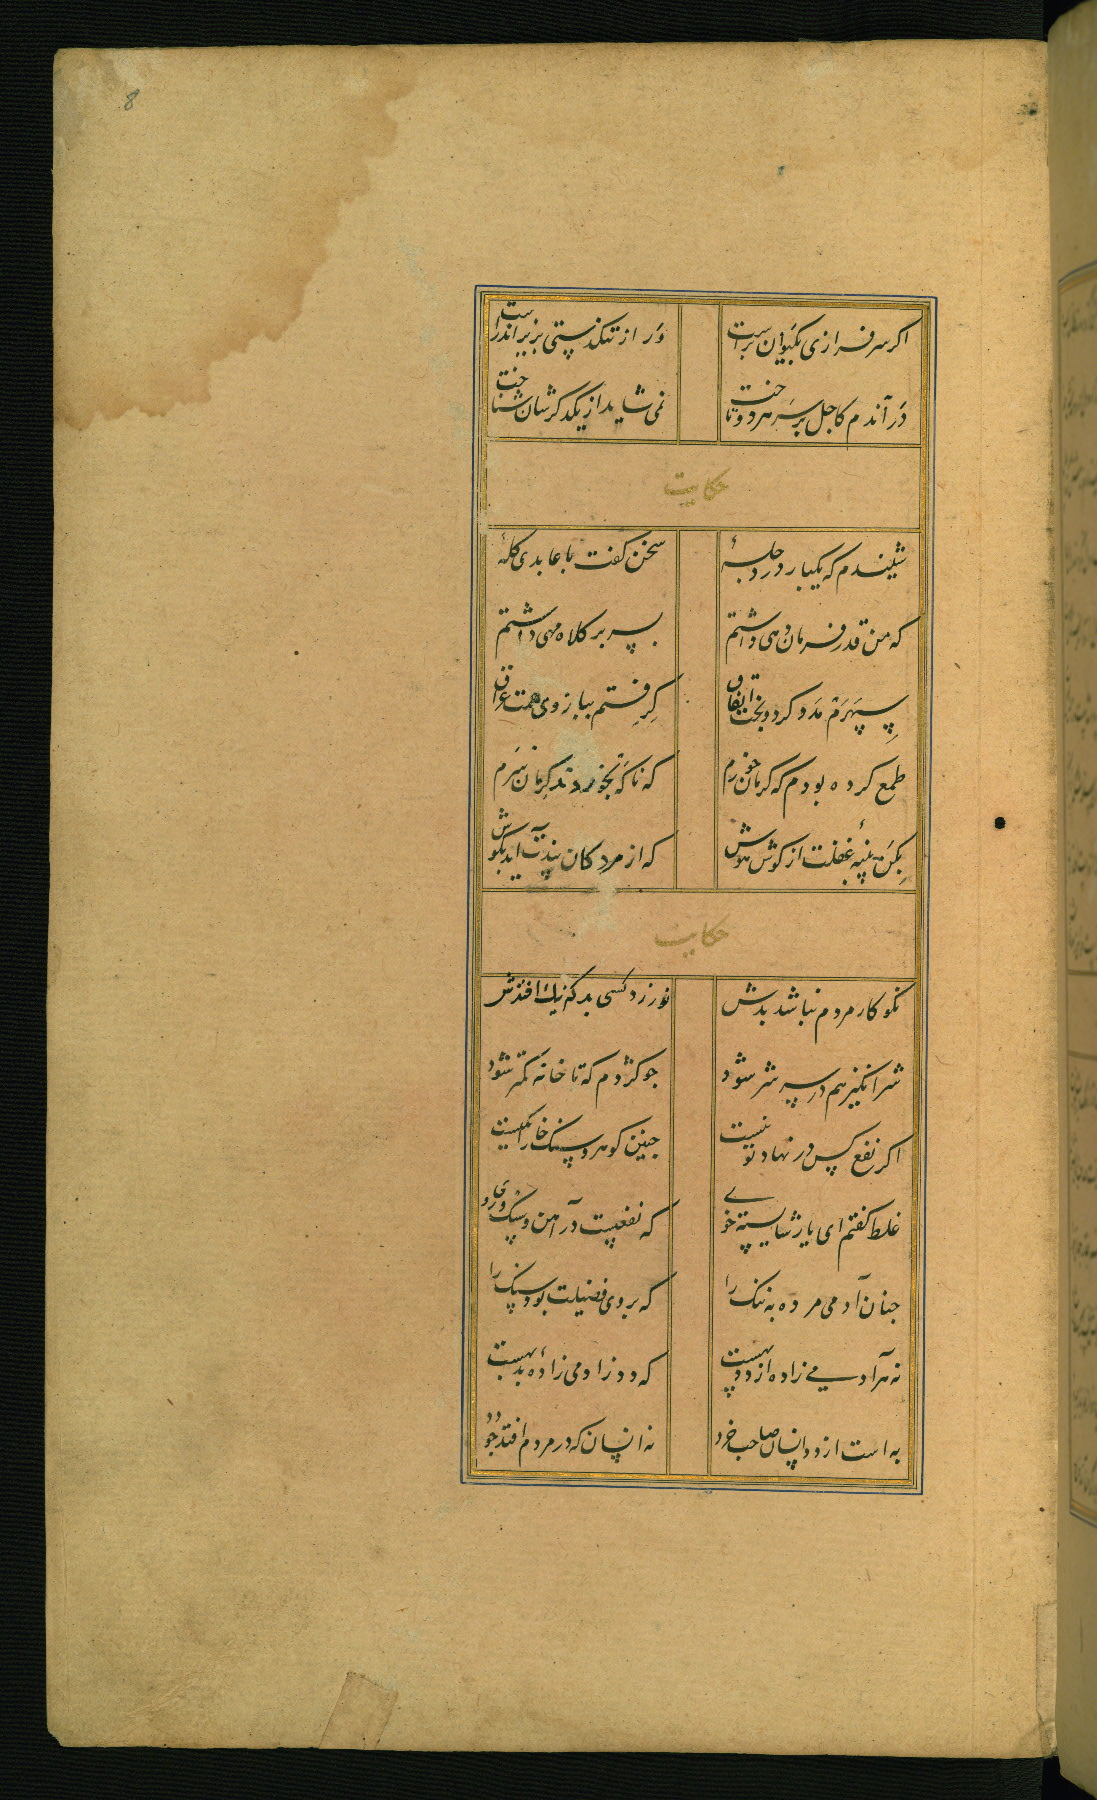 8
اکر سرفرازی بکیوان برست	ور از تنکدستی بزیر اندر است
در آندم کاجل بر سر هر دو تاخت	نمی شاید از یکدکرشان شناخت
حکایت
شنیدم که یکبار در دجلهٔ	سخن کفت با عابدی کلهٔ
که من قدر فرمان دهی داشتم	بسر بر کلاه مهی داشتم
سپهرم مدد کرد و بخت اتفاق	کرفتم ببازوی همت عراق
طمع کرده بودم که کرمان خورم	که ناکه بخوردند کرمان سرم
بکن پنبهٔ غفلت از کوش هوش	که از مردکان پندت آید بکوش
حکایت
نکو کار مردم نباشد بدش	نورزد کسی بد که نیک افتدش
شرانکیز هم در سر شر شود	جو کژدم که تا خانه کمتر شود
اکر نفع کس در نهاد تو نیست	جنین کوهر و سنک خارا یکیست
غلط کفتم ای یار شایسته خوی	که نفعست در آهن و سنک و روی
جنان آدمی مرده به ننک را	که بر وی فضیلت بود سنک را
نه هر آدمی زاده از دد بهست	که دد ز ادمی زادهٔ بد بهست
به است از دد انسان صاحب خرد	نه انسان که در مردم افتد جو دد